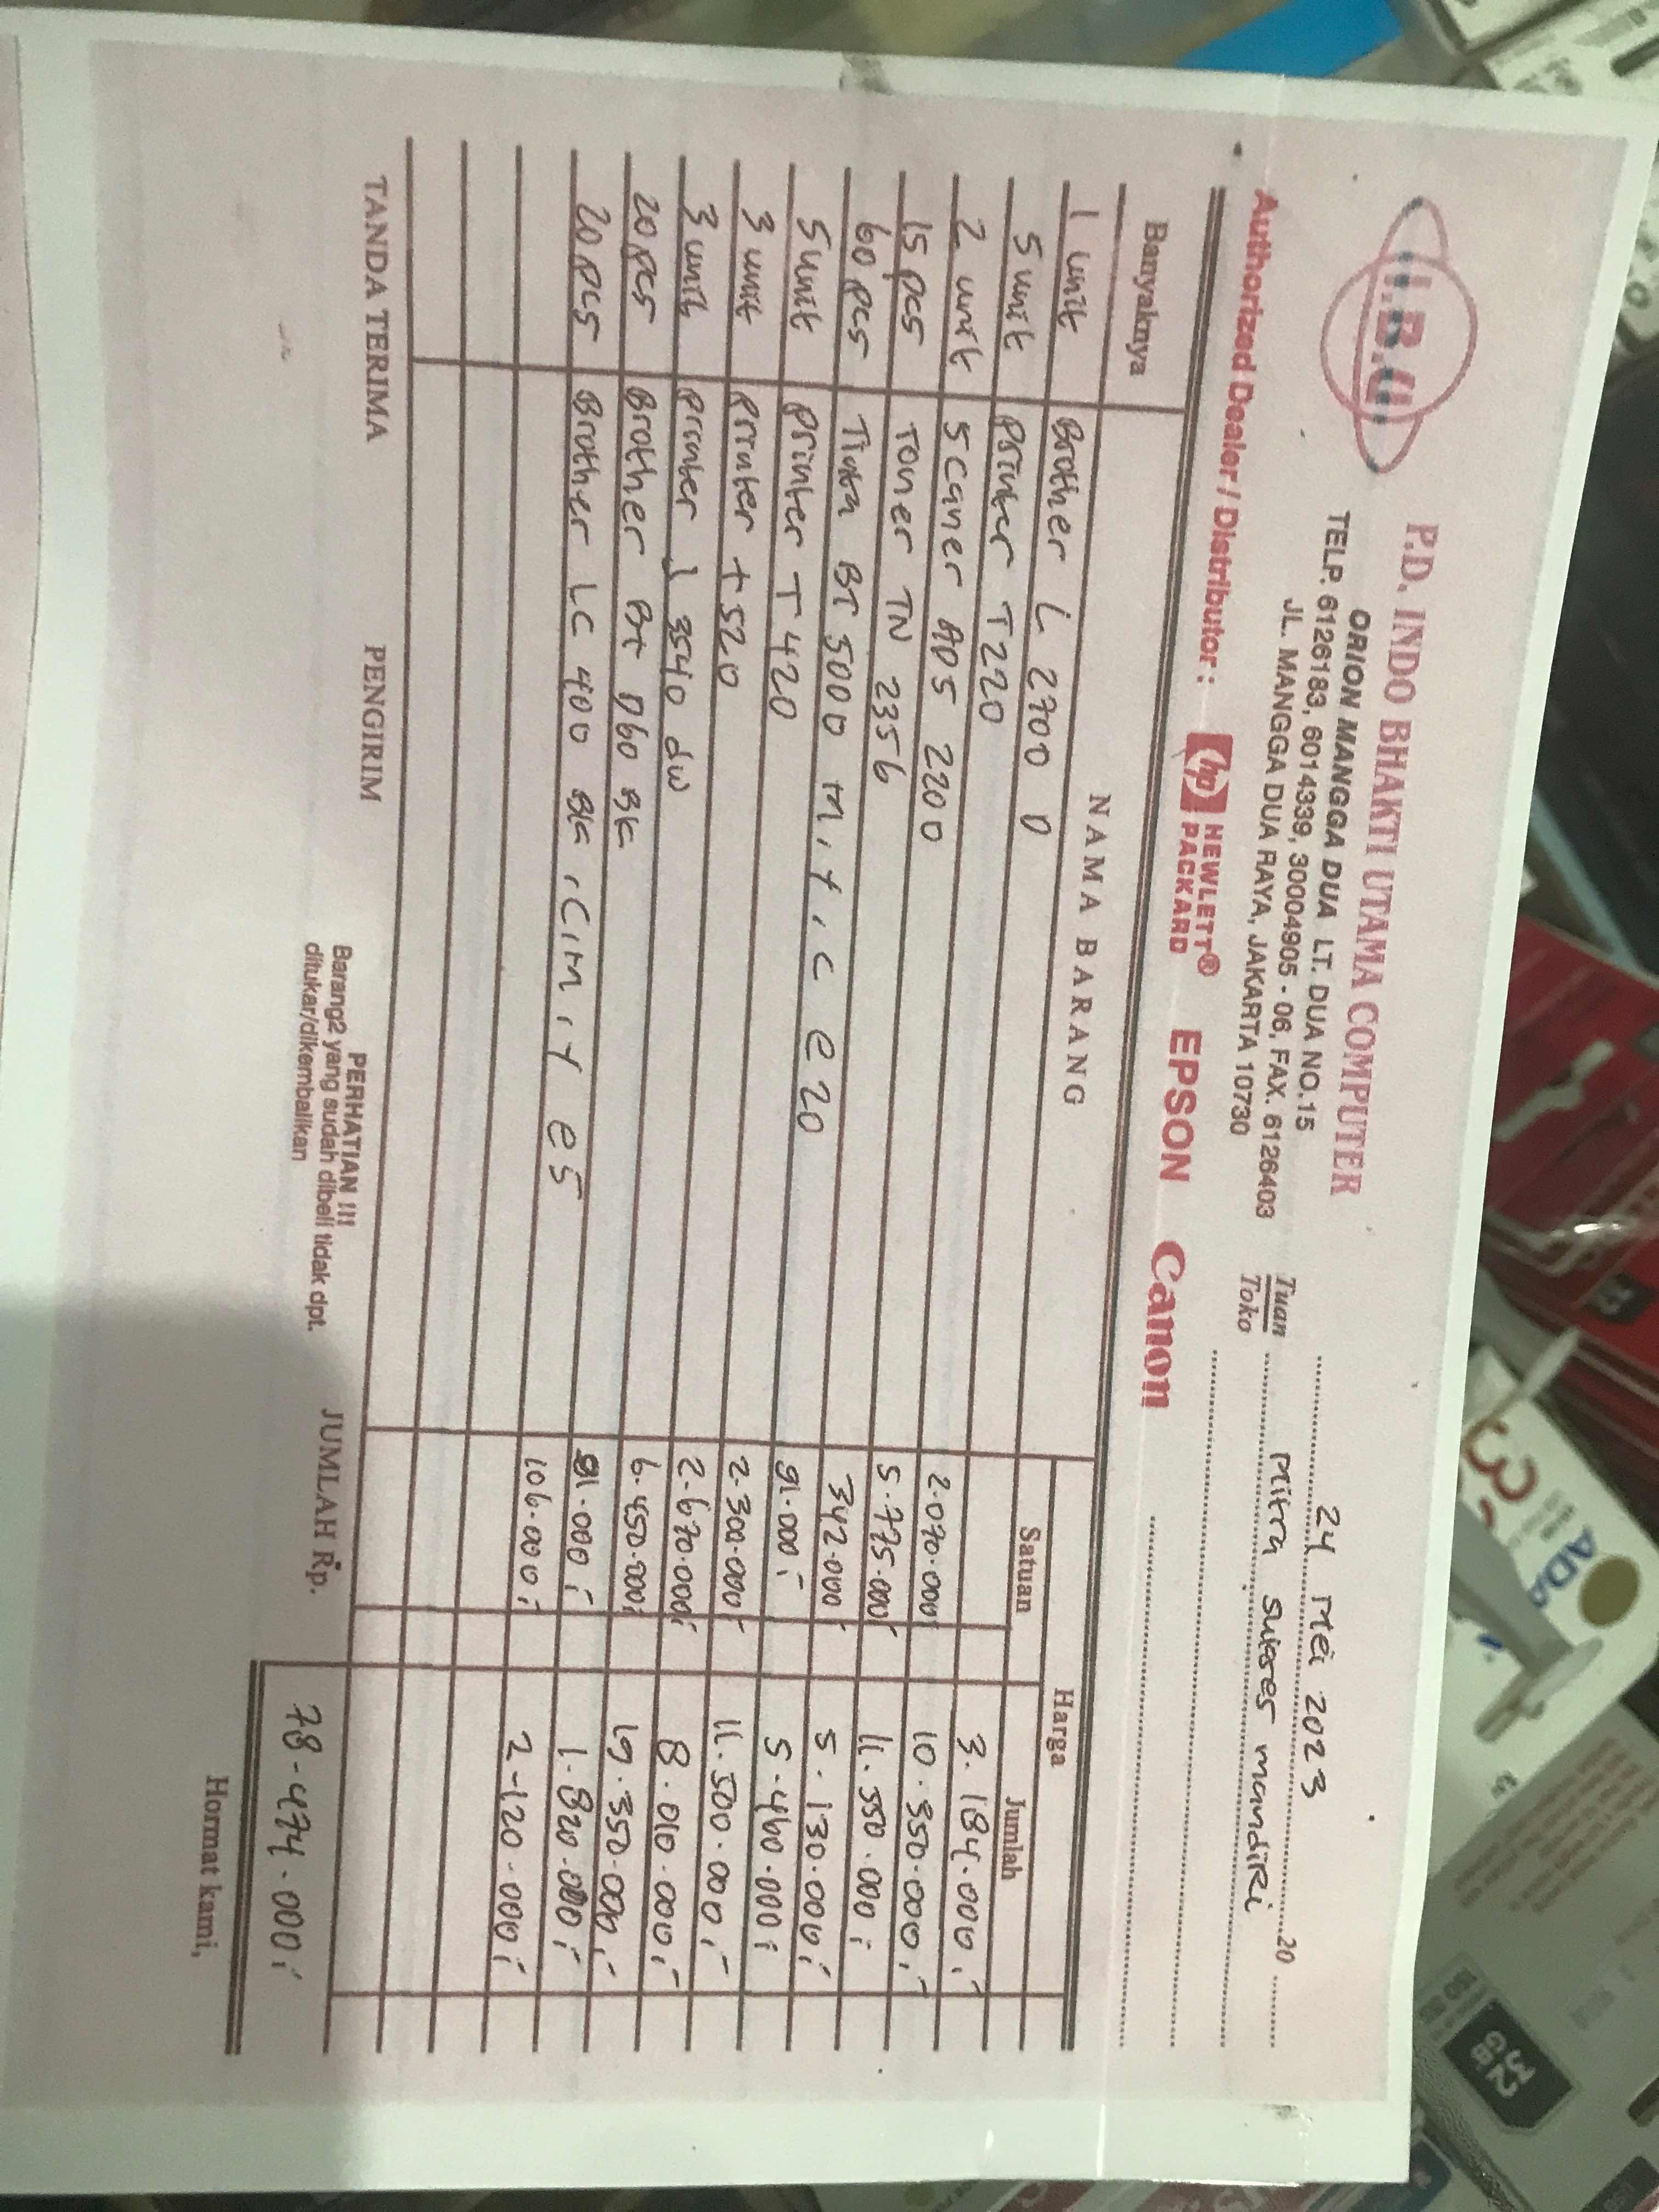 I.B.U.
P.D. INDO BHAKTI UTAMA COMPUTER
ORION MANGGA DUA LT. DUA NO.15
TELP. 6126183, 6014339, 30004905 - 06, FAX. 6126403
JL. MANGGA DUA RAYA, JAKARTA 10730
24 Mei 2023 20
Tuan
Toko
Mitra sukses mandiri
Authorized Dealer / Distributor : hp HEWLETT® PACKARD EPSON Canon
Banyaknya NAMA BARANG Harga
Satuan Jumlah
1 unit Brother L 2700 D 3.184.000,-
5 unit Printer T220 2.070.000 10.350.000,-
2 unit Scaner ADS 2200 5.775.000 11.550.000,-
15 pcs Toner TN 2356 342.000 5.130.000,-
60 pcs Tinta BT 5000 M, Y, C @ 20 91.000,- 5.460.000,-
5 unit Printer T420 2.300.000,- 11.500.000,-
3 unit Printer T520 2.670.000,- 8.010.000,-
3 unit Printer J 3540 dw 6.450.000,- 19.350.000,-
20 pcs Brother BT D60 BK 91.000,- 1.820.000,-
20 pcs Brother LC 400 BK, C, M, Y @ 5 106.000,- 2.120.000,-
TANDA TERIMA PENGIRIM
PERHATIAN !!!
Barang2 yang sudah dibeli tidak dpt.
ditukar/dikembalikan
JUMLAH Rp. 78.474.000,-
Hormat kami,
ADA
32
GB